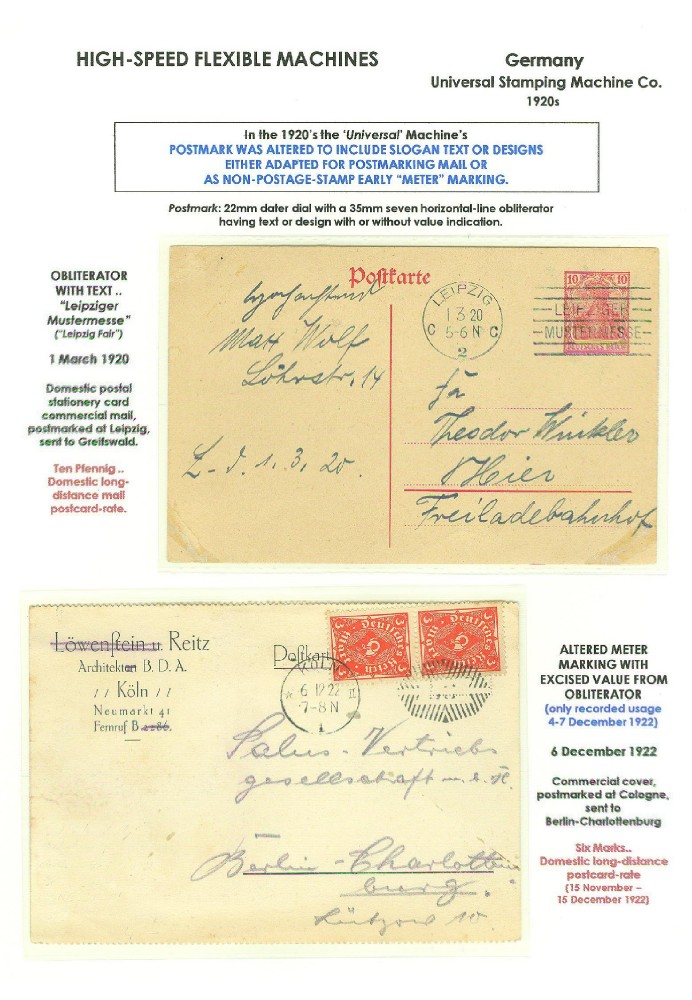 HIGH-SPEED FLEXIBLE MACHINES
Germany
Universal Stamping Machine Co.
1920s
In the 1920's the 'Universal' Machine's
POSTMARK WAS ALTERED TO INCLUDE SLOGAN TEXT OR DESIGNS
EITHER ADAPTED FOR POSTMARKING MAIL OR
AS NON-POSTAGE-STAMP EARLY "METER" MARKING.
Postmark: 22mm dater dial with a 35mm seven horizontal-line obliterator
having text or design with or without value indication.
OBLITERATOR
WITH TEXT ..
"Leipziger
Mustermesse"
("Leipzig Fair")
1 March 1920
Domestic postal
stationery card
commercial mail,
postmarked at Leipzig,
sent to Greifswald.
Ten Pfennig ..
Domestic long-
distance mail
postcard-rate.
Postkarte
LEIPZIG
1 3 20
C 5-6 N C
2
10 10
LEIPZIGER
MUSTERMESSE
DEUTSCHES REICH
Max Wolf
Löhrstr. 14
L-d. 1. 3. 20.
Fa
Theodor Winkler
Hier
Freiladebahnhof
Löwenstein u. Reitz
Architekten B. D. A.
// Köln //
Neumarkt 41
Fernruf B 2286.
Postkarte
KÖLN
* 6 12 22 II
7-8 N
1
3 Deutsches Reich 3
3 Deutsches Reich 3
Salus-Vertriebs
gesellschaft m. b. H.
Berlin-Charlotten
burg.
Lützow 10.
ALTERED METER
MARKING WITH
EXCISED VALUE FROM
OBLITERATOR
(only recorded usage
4-7 December 1922)
6 December 1922
Commercial cover,
postmarked at Cologne,
sent to
Berlin-Charlottenburg
Six Marks..
Domestic long-distance
postcard-rate
(15 November –
15 December 1922)